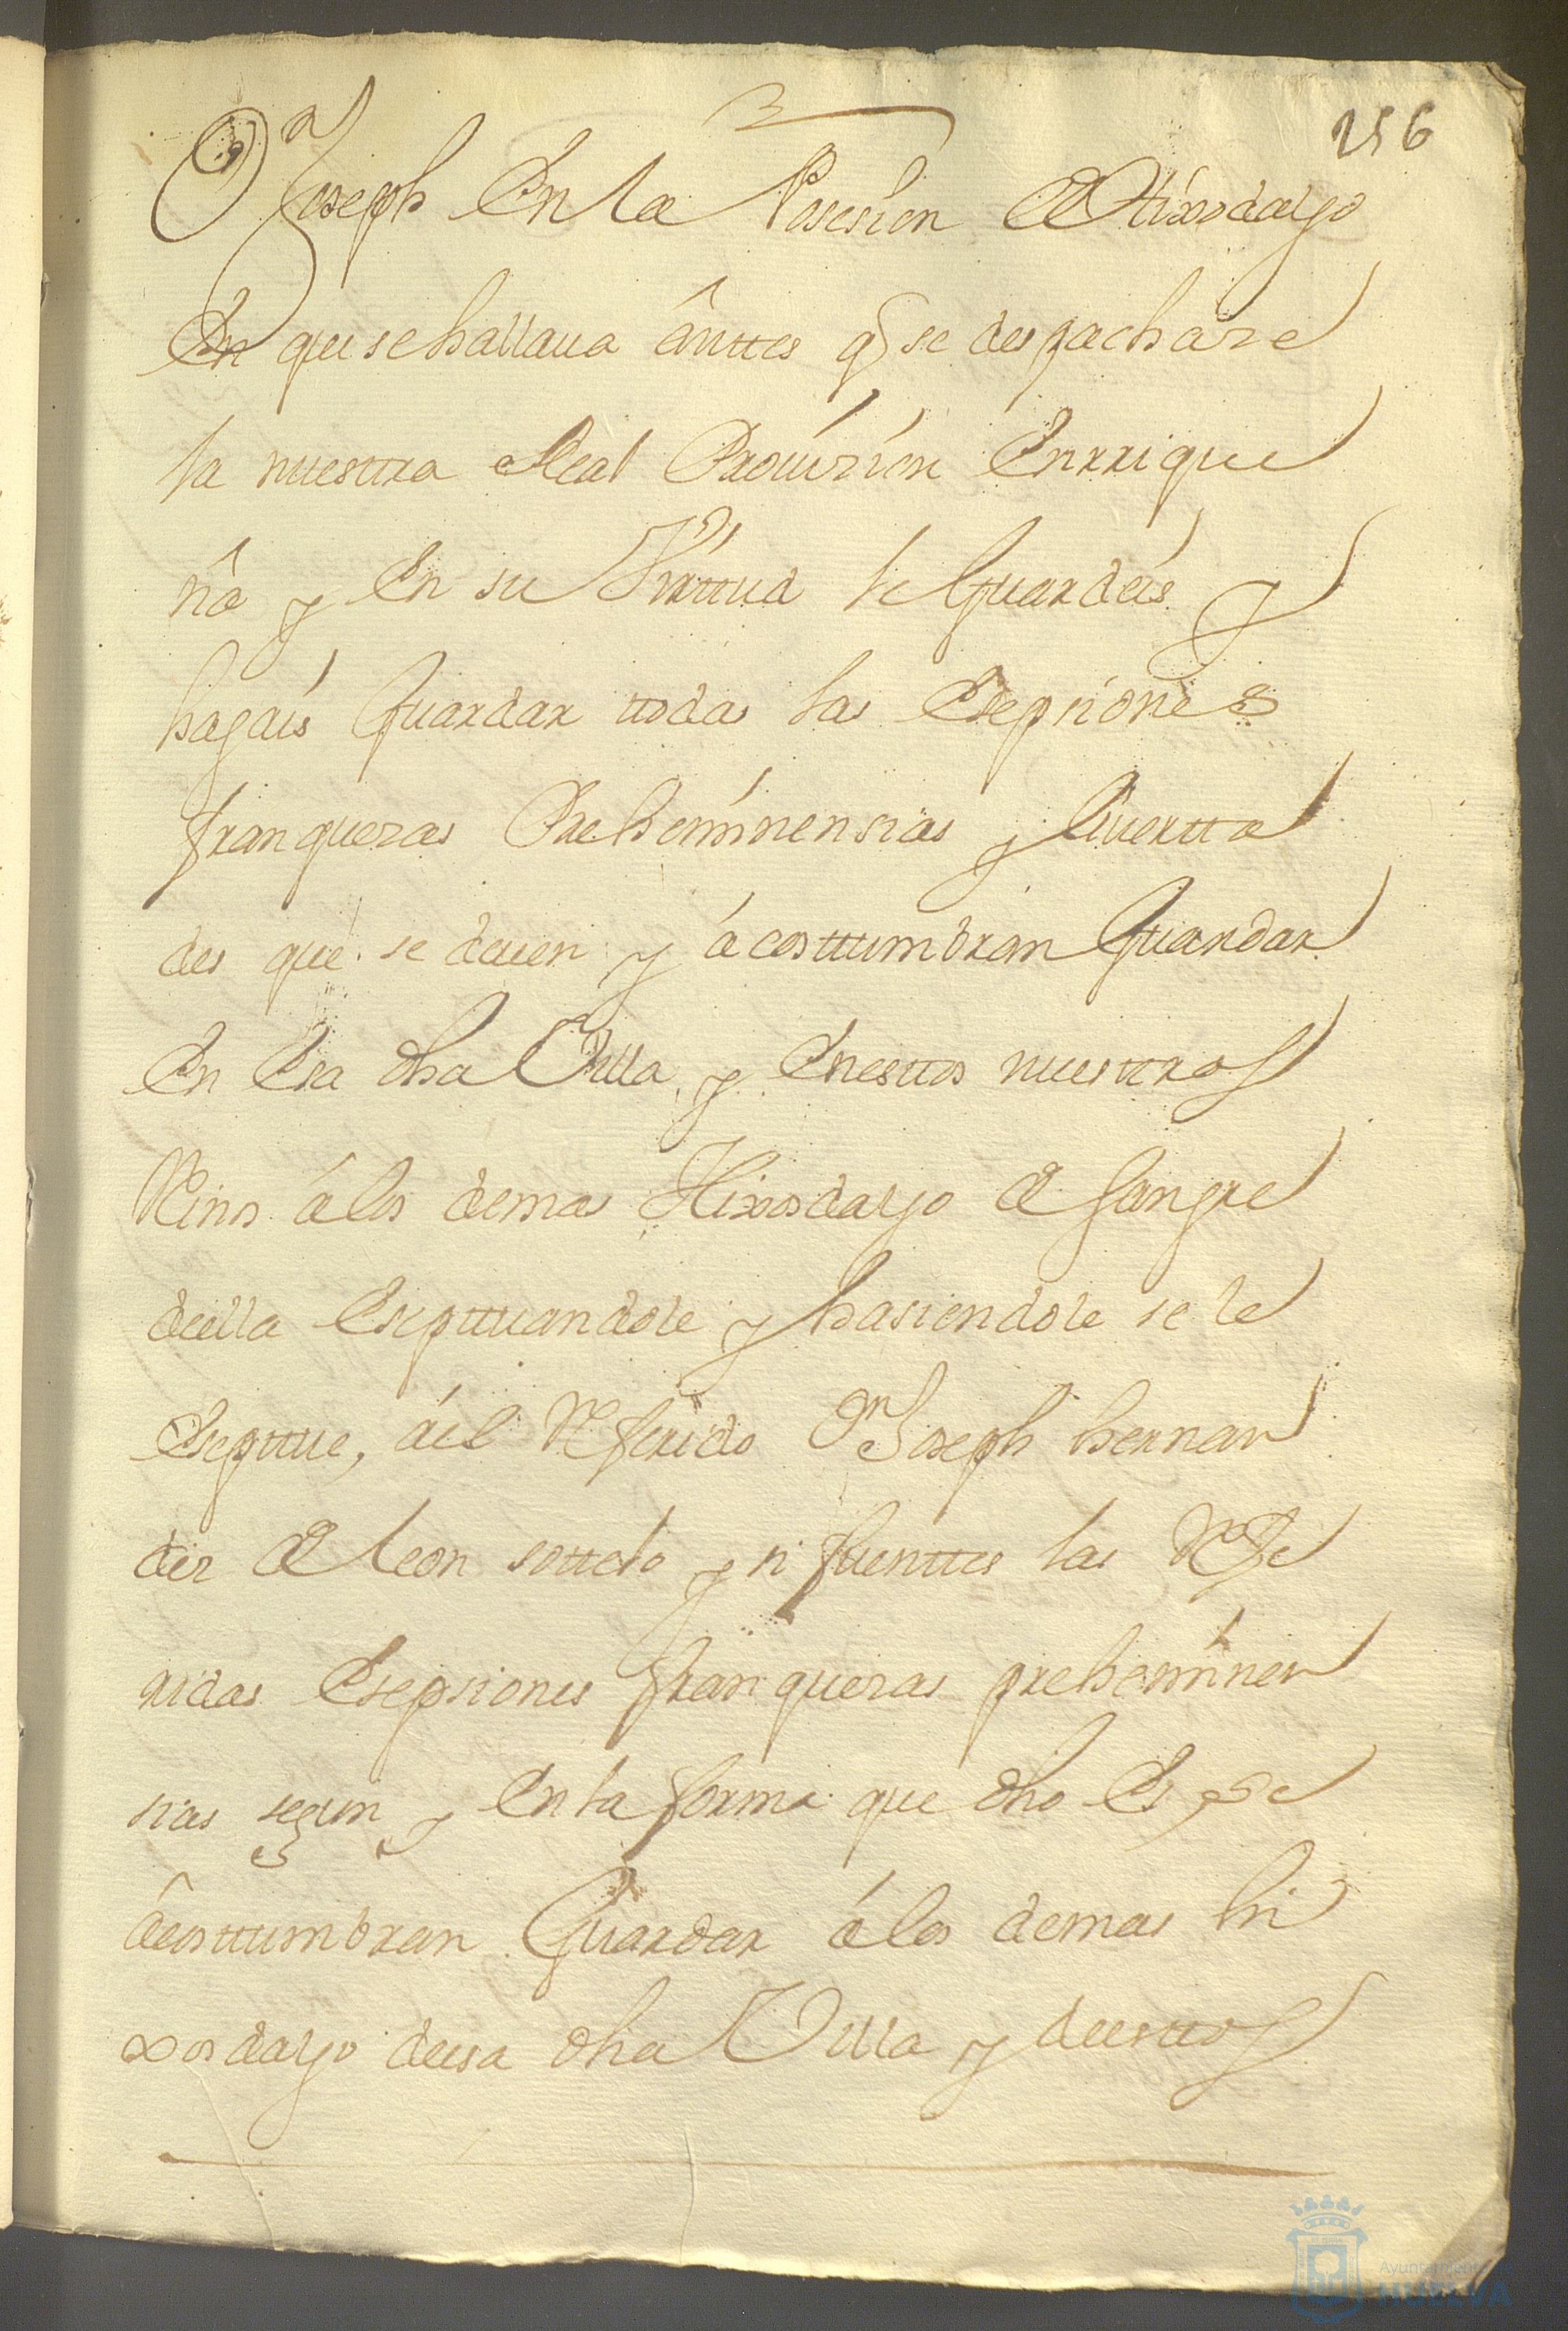 256
Dn Joseph En la Posesion de Hixodalgo
En que se hallaua ânttes q se despachare
la nuestra Real Prouizion Enrrique
ña y En su Virttud le Guardeis y
hagais Guardar ttodas las Esepsiones
franquezas Preheminensias y liuertta
des que se deuen y ácosttumbran Guardar
En Esa dha Villa, y Enesttos nuesttros
Reinos álos demas Hixosdalgo de sangre
deella Eseptuandole y hasiendole se le
Eseptue, áel Referido Dn Joseph hernan
dez de leon sottelo y si fuenttes las Refe
ridas Esepsiones franquezas preheminen
sias segun y En la forma que dho Es y se
âcosttumbran Guardar álos demas hi
xosdalgo deesa dha Villa y deesttos
Ayuntamiento
HUELVA